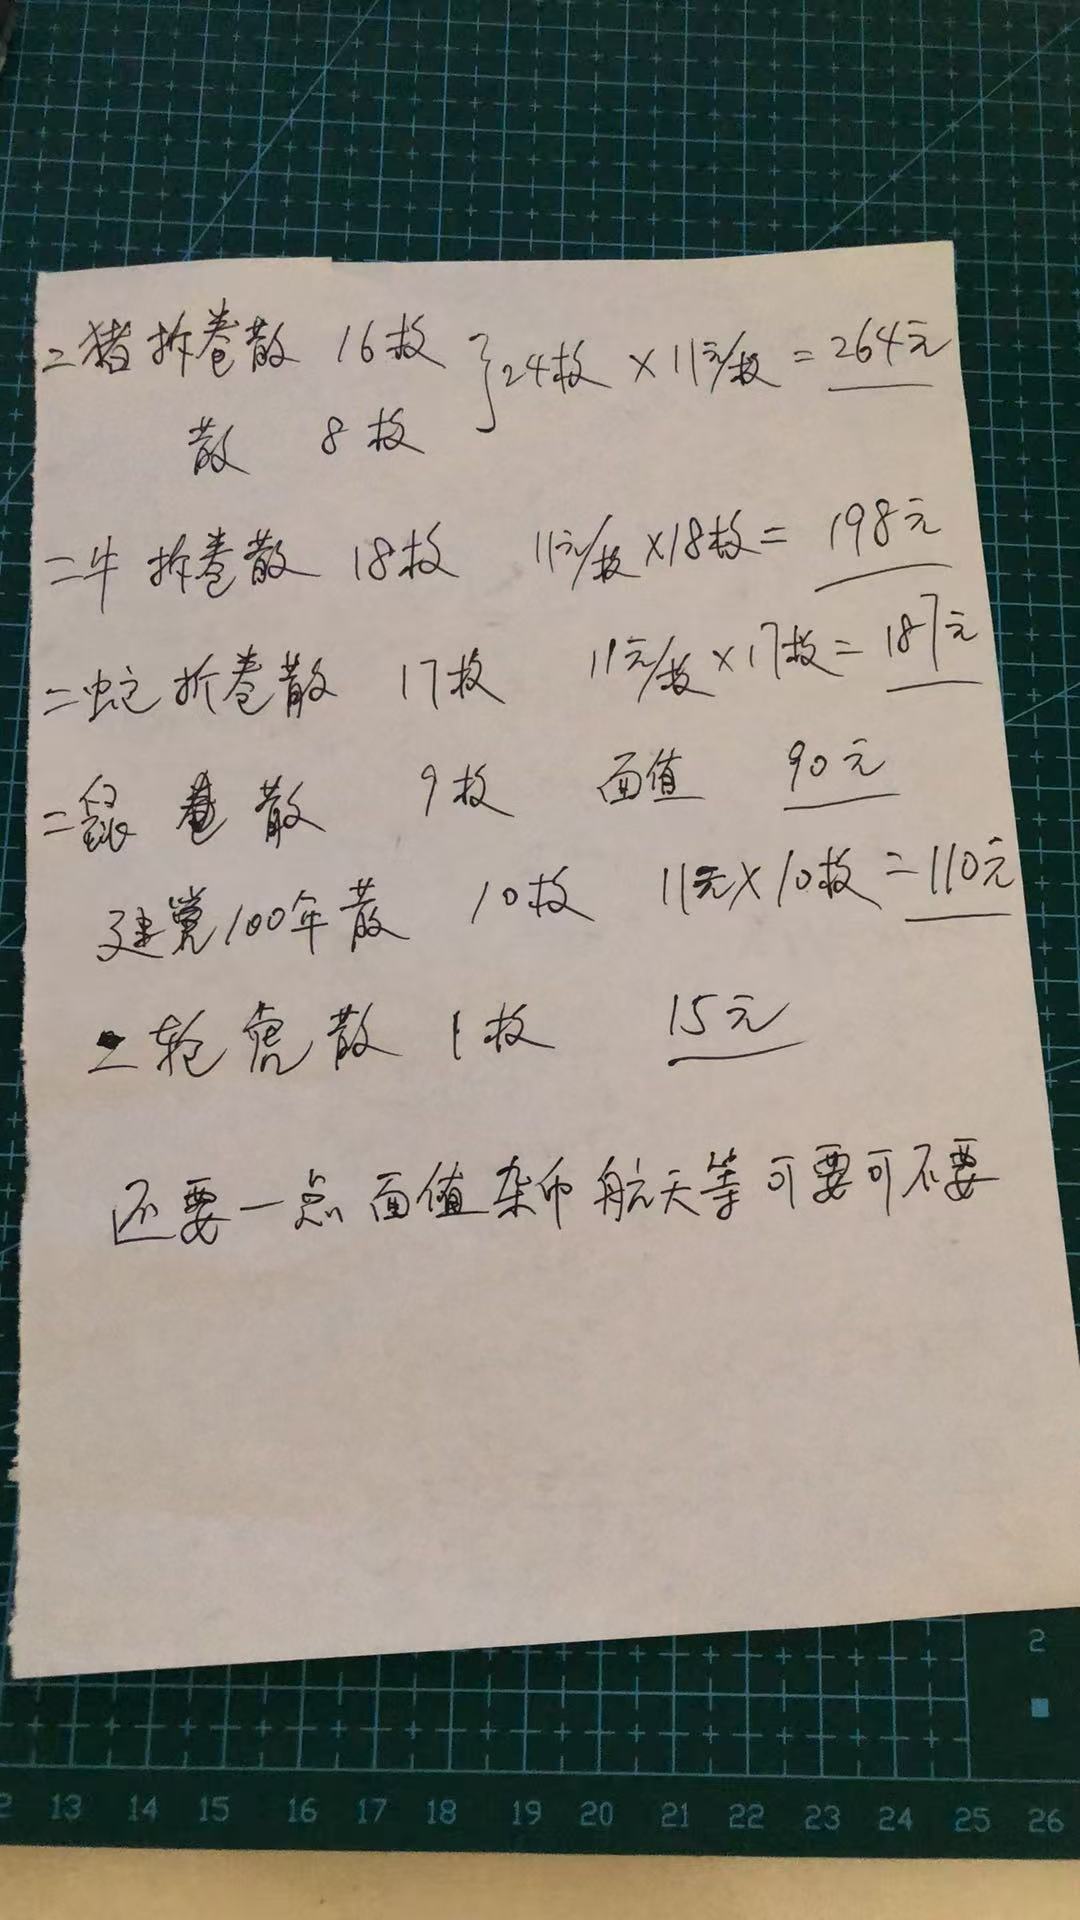 二猪拆卷散 16枚 }24枚 × 11元/枚 = 264元
散 8枚
二牛拆卷散 18枚 11元/枚 ×18枚= 198元
二蛇拆卷散 17枚 11元/枚 ×17枚= 187元
二鼠 卷 散 9枚 面值 90元
建党100年散 10枚 11元×10枚=110元
二轮虎散 1枚 15元
还要一点面值杂币航天等可要可不要
2
2 13 14 15 16 17 18 19 20 21 22 23 24 25 26